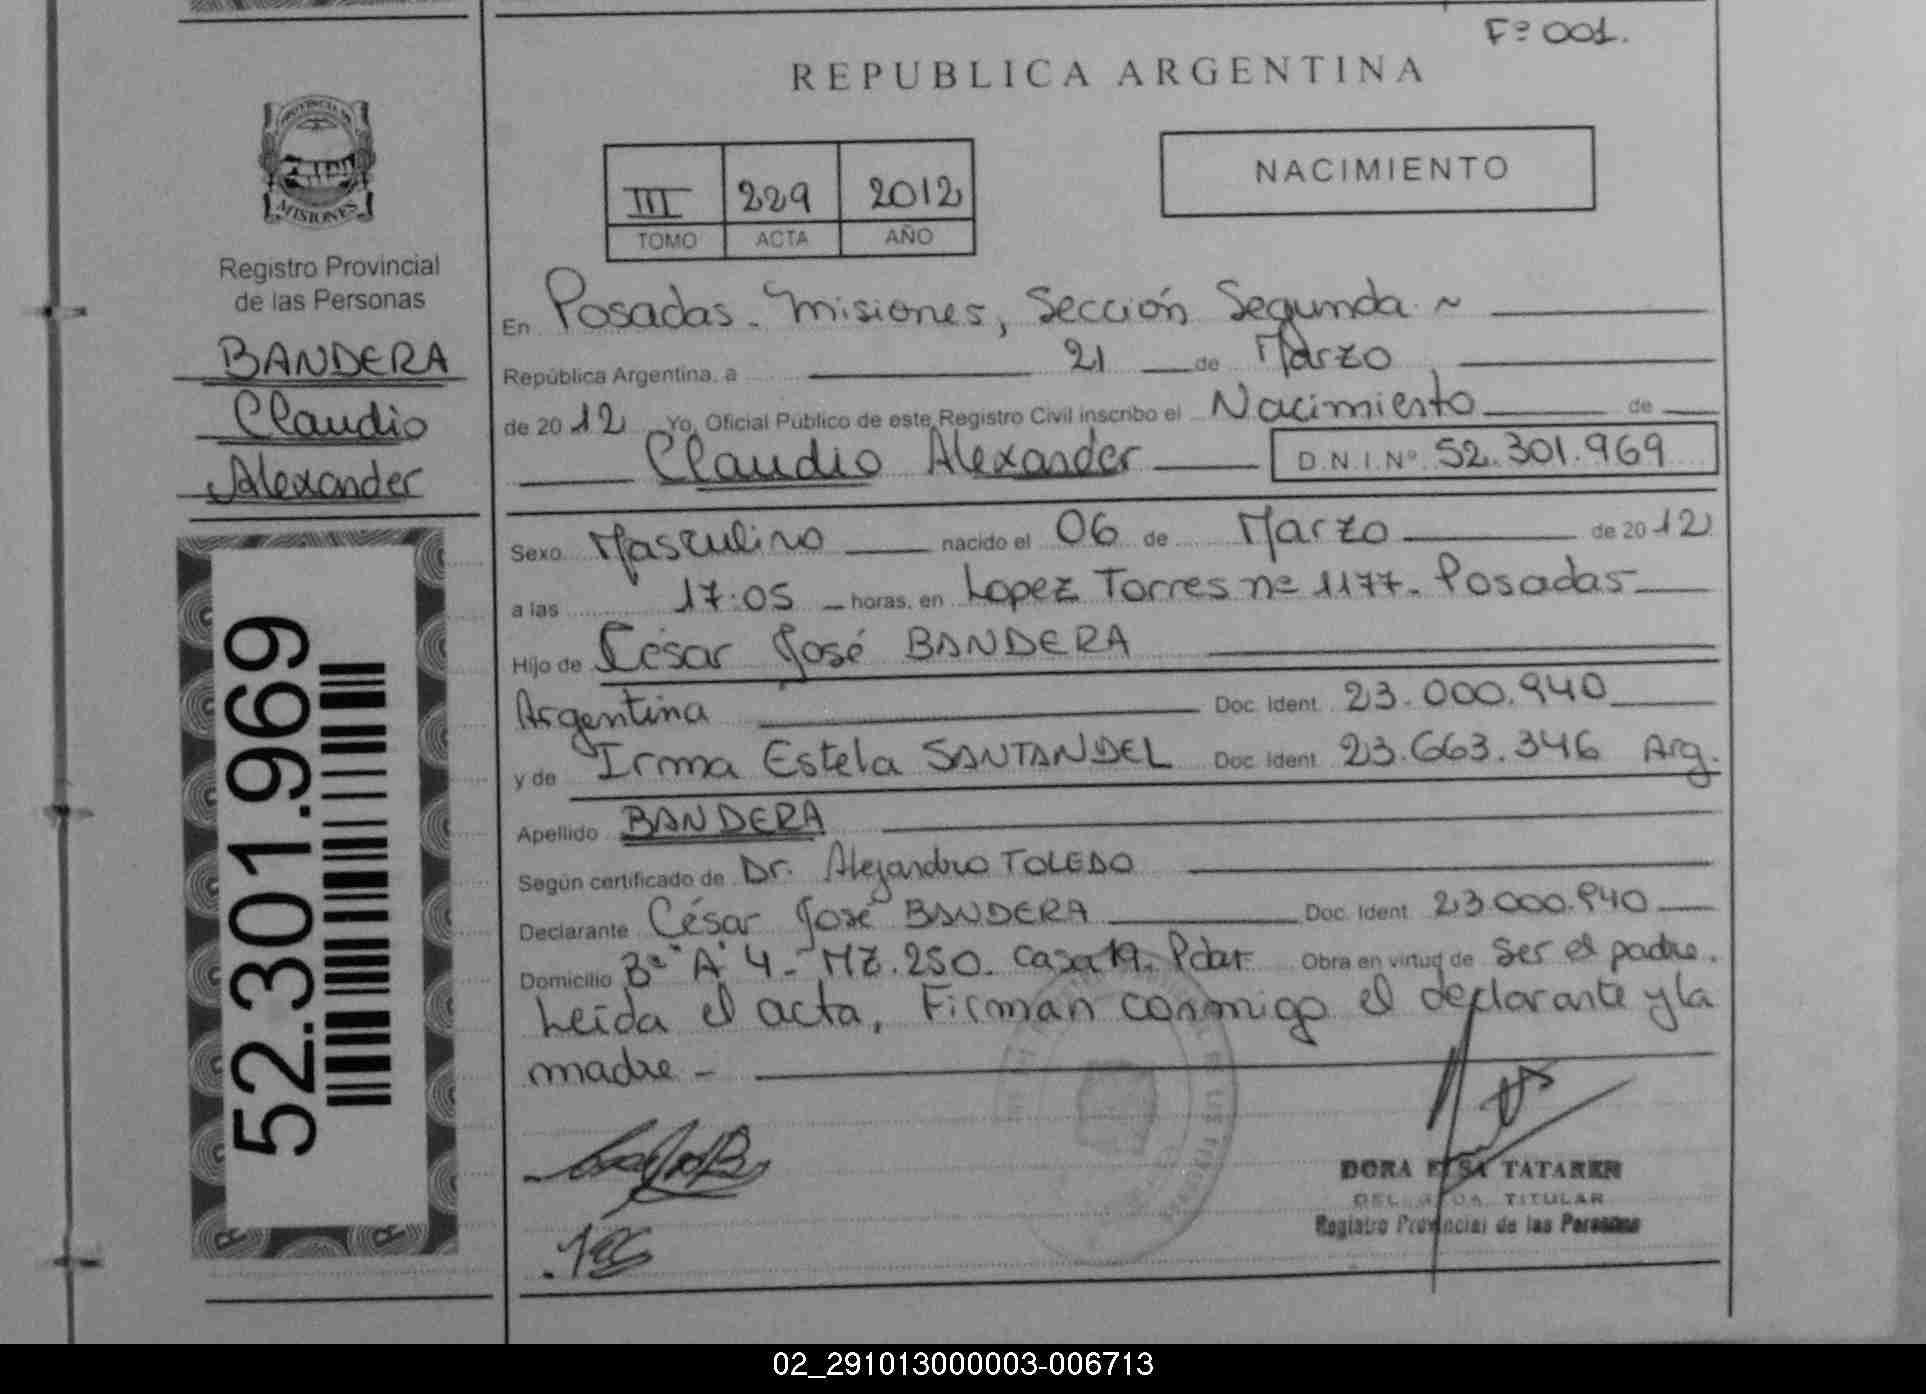 Fº 001.
REPUBLICA ARGENTINA
PROVINCIA DE
MISIONES
Registro Provincial
de las Personas
BANDERA
Claudio
Alexander
52.301.969
III 229 2012
TOMO ACTA AÑO
NACIMIENTO
En Posadas. Misiones, Sección Segunda ~
República Argentina, a 21 de Marzo
de 2012 Yo, Oficial Público de este Registro Civil inscribo el Nacimiento de
Claudio Alexander D.N.I.Nº 52.301.969
Sexo Masculino nacido el 06 de Marzo de 2012
a las 17:05 horas, en Lopez Torres nº 1177. Posadas
Hijo de César José BANDERA
Argentina Doc. Ident. 23.000.940
y de Irma Estela SANTANDEL Doc. Ident. 23.663.346 Arg.
Apellido BANDERA
Según certificado de Dr. Alejandro TOLEDO
Declarante César José BANDERA Doc. Ident. 23.000.940
Domicilio Bº "A" 4 - MZ. 250. Casa 19. Pdas. Obra en virtud de ser el padre.
Leída el acta, Firman conmigo el declarante y la
madre -
DORA ELSA TATAREN
DELEGADA TITULAR
Registro Provincial de las Personas
02_291013000003-006713